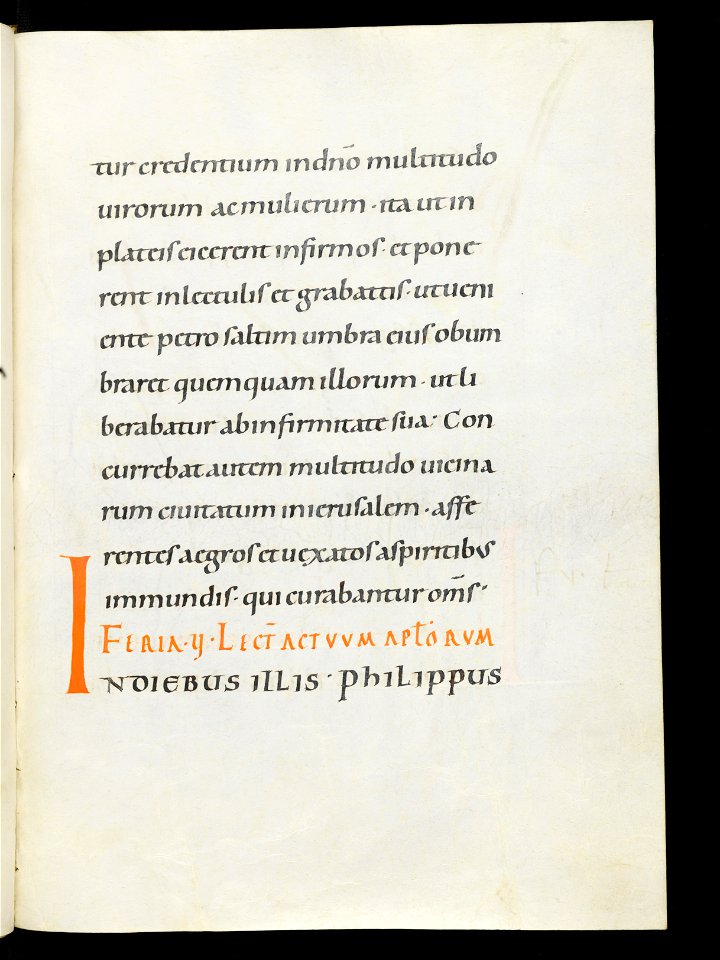 tur credentium in dn̄o multitudo
uirorum ac mulierum · ita ut in
plateis eicerent infirmos · et pone
rent in lectulis et grabattis · ut ueni
ente petro saltim umbra eius obum
braret quemquam illorum · ut li
berabatur ab infirmitate sua · Con
currebat autem multitudo uicina
rum ciuitatum in ierusalem · affe
rentes aegros et uexatos a spiritibus
immundis · qui curabantur om̄s ·
FERIA · IJ · LECT̄ ACTVVM APL̄ORVM
INDIEBUS ILLIS · PHILIPPUS